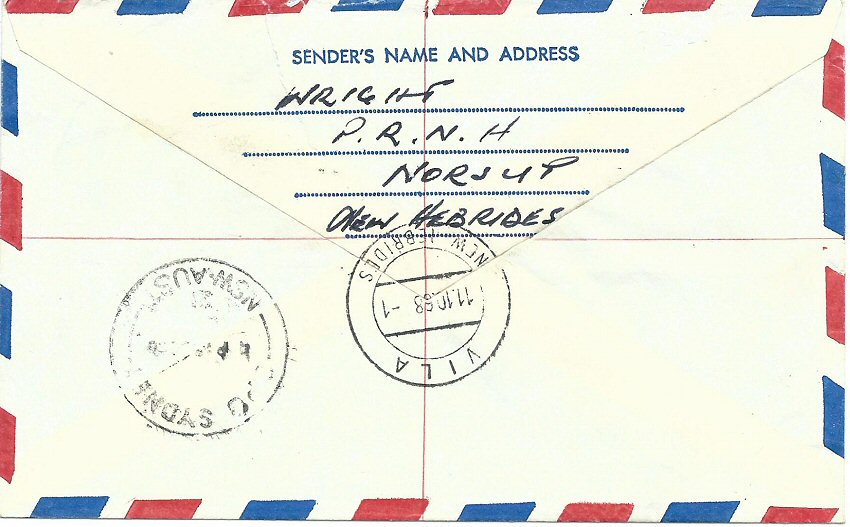 SENDER'S NAME AND ADDRESS
WRIGHT
P.R.N.H
NORSUP
NEW HEBRIDES
NEW HEBRIDES
11.10.68 -1
VILA
NSW-AUST
SYDNE